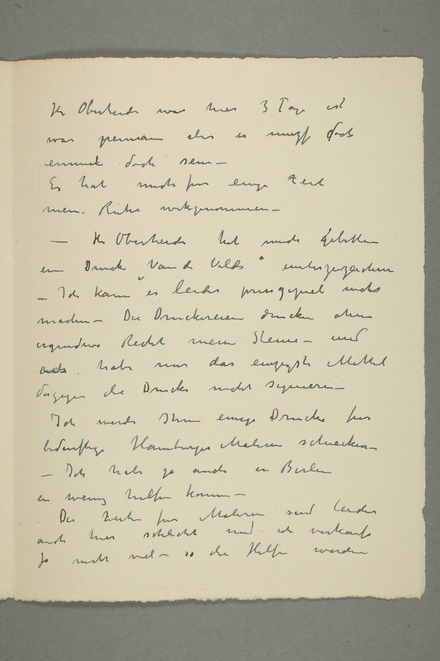 Hr Oberheide war hier 3 Tage ist
war grausam aber es musste doch
einmal doch sein –
Es hat mich für einige Zeit
meine Ruhe weggenommen –
– Hr Oberheide hat mich gebeten
ein Druck "Van de Velde" unterzuzeichnen
– Ich kann es leider principiel nicht
machen – Die Druckereien drucken ohne
irgendwo Recht meine Steine – und
ich habe nur das einzigste Mittel
dagegen die Drucke nicht signieren –
Ich werde Ihnen einige Drucke für
bedürftige Hamburger Maler schicken –
– Ich habe ja auch in Berlin
ein wenig helfen können –
Die Zeiten für Maler sind leider
auch hier schlecht und ich verkaufe
ja nicht viel – so die Hilfe werden